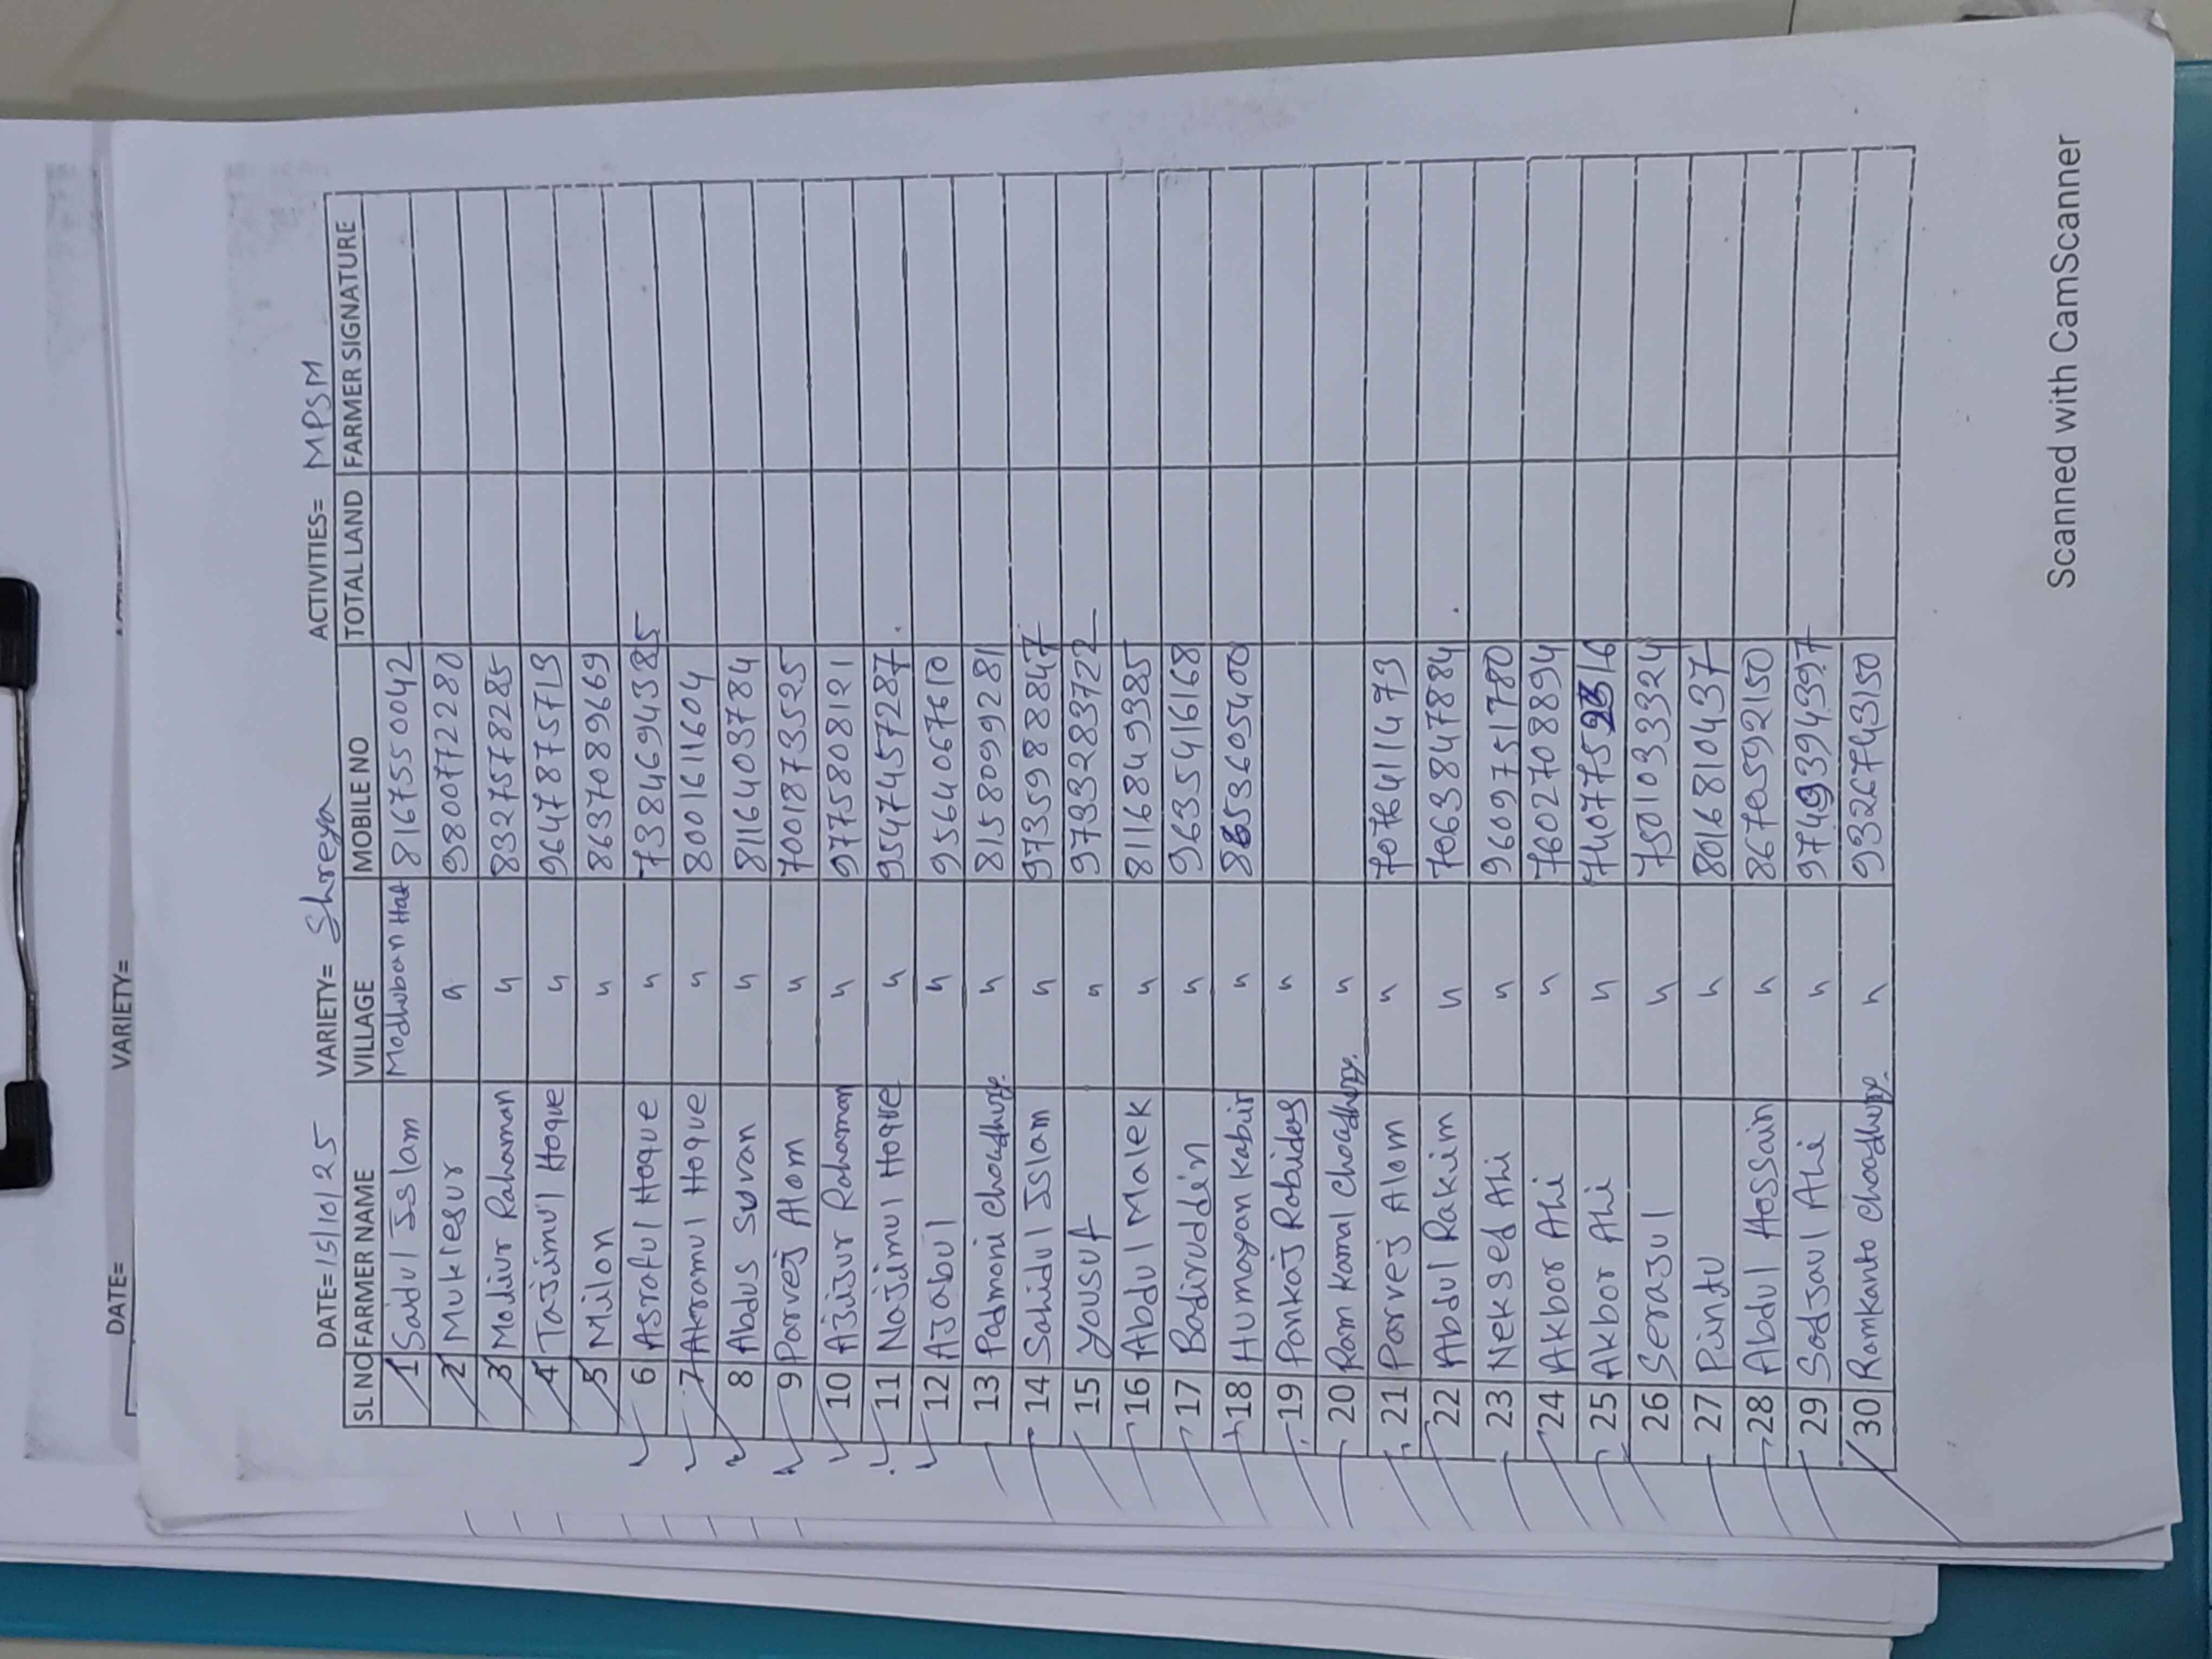 DATE= VARIETY=
DATE= 15/10/25 VARIETY= Shreya ACTIVITIES= MPSM
SL NO FARMER NAME VILLAGE MOBILE NO TOTAL LAND FARMER SIGNATURE
1 Saidul Islam Modhuban Hat 8167550042
2 Muklesur " 9800772280
3 Motiur Rahaman " 8327578285
4 Tajimul Hoque " 9647875713
5 Milon " 8637089669
6 Asraful Hoque " 7384694385
7 Akramul Hoque " 8001611604
8 Abdus Suvan " 8116403784
9 Parvej Alom " 7001873525
10 Azizur Rahaman " 9775808121
11 Najimul Hoque " 9547457287
12 Ajabul " 9564067610
13 Padmoni Choudhury. " 8158099281
14 Sahidul Islam " 9735988847
15 Yousuf " 9733283722
16 Abdul Malek " 8116849385
17 Badiruddin " 9635416168
18 Humayan Kabir " 8653605400
19 Pankaj Robidas "
20 Ram Kamal Choudhury. "
21 Parvej Alom " 7076411473
22 Abdul Rakim " 7063847884
23 Neksed Ali " 9609751780
24 Akbor Ali " 7602708894
25 Akbor Ali "
26 Serajul " 7501033324
27 Pintu " 8016810437
28 Abdul Hossain " 8670592150
29 Sadjaul Ali " 9749394397
30 Ramkanto Choudhury. " 9326743150
Scanned with CamScanner